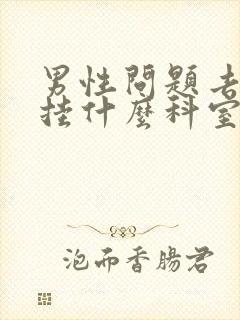 男性問題去
挂什麼科室
泡而香腸君